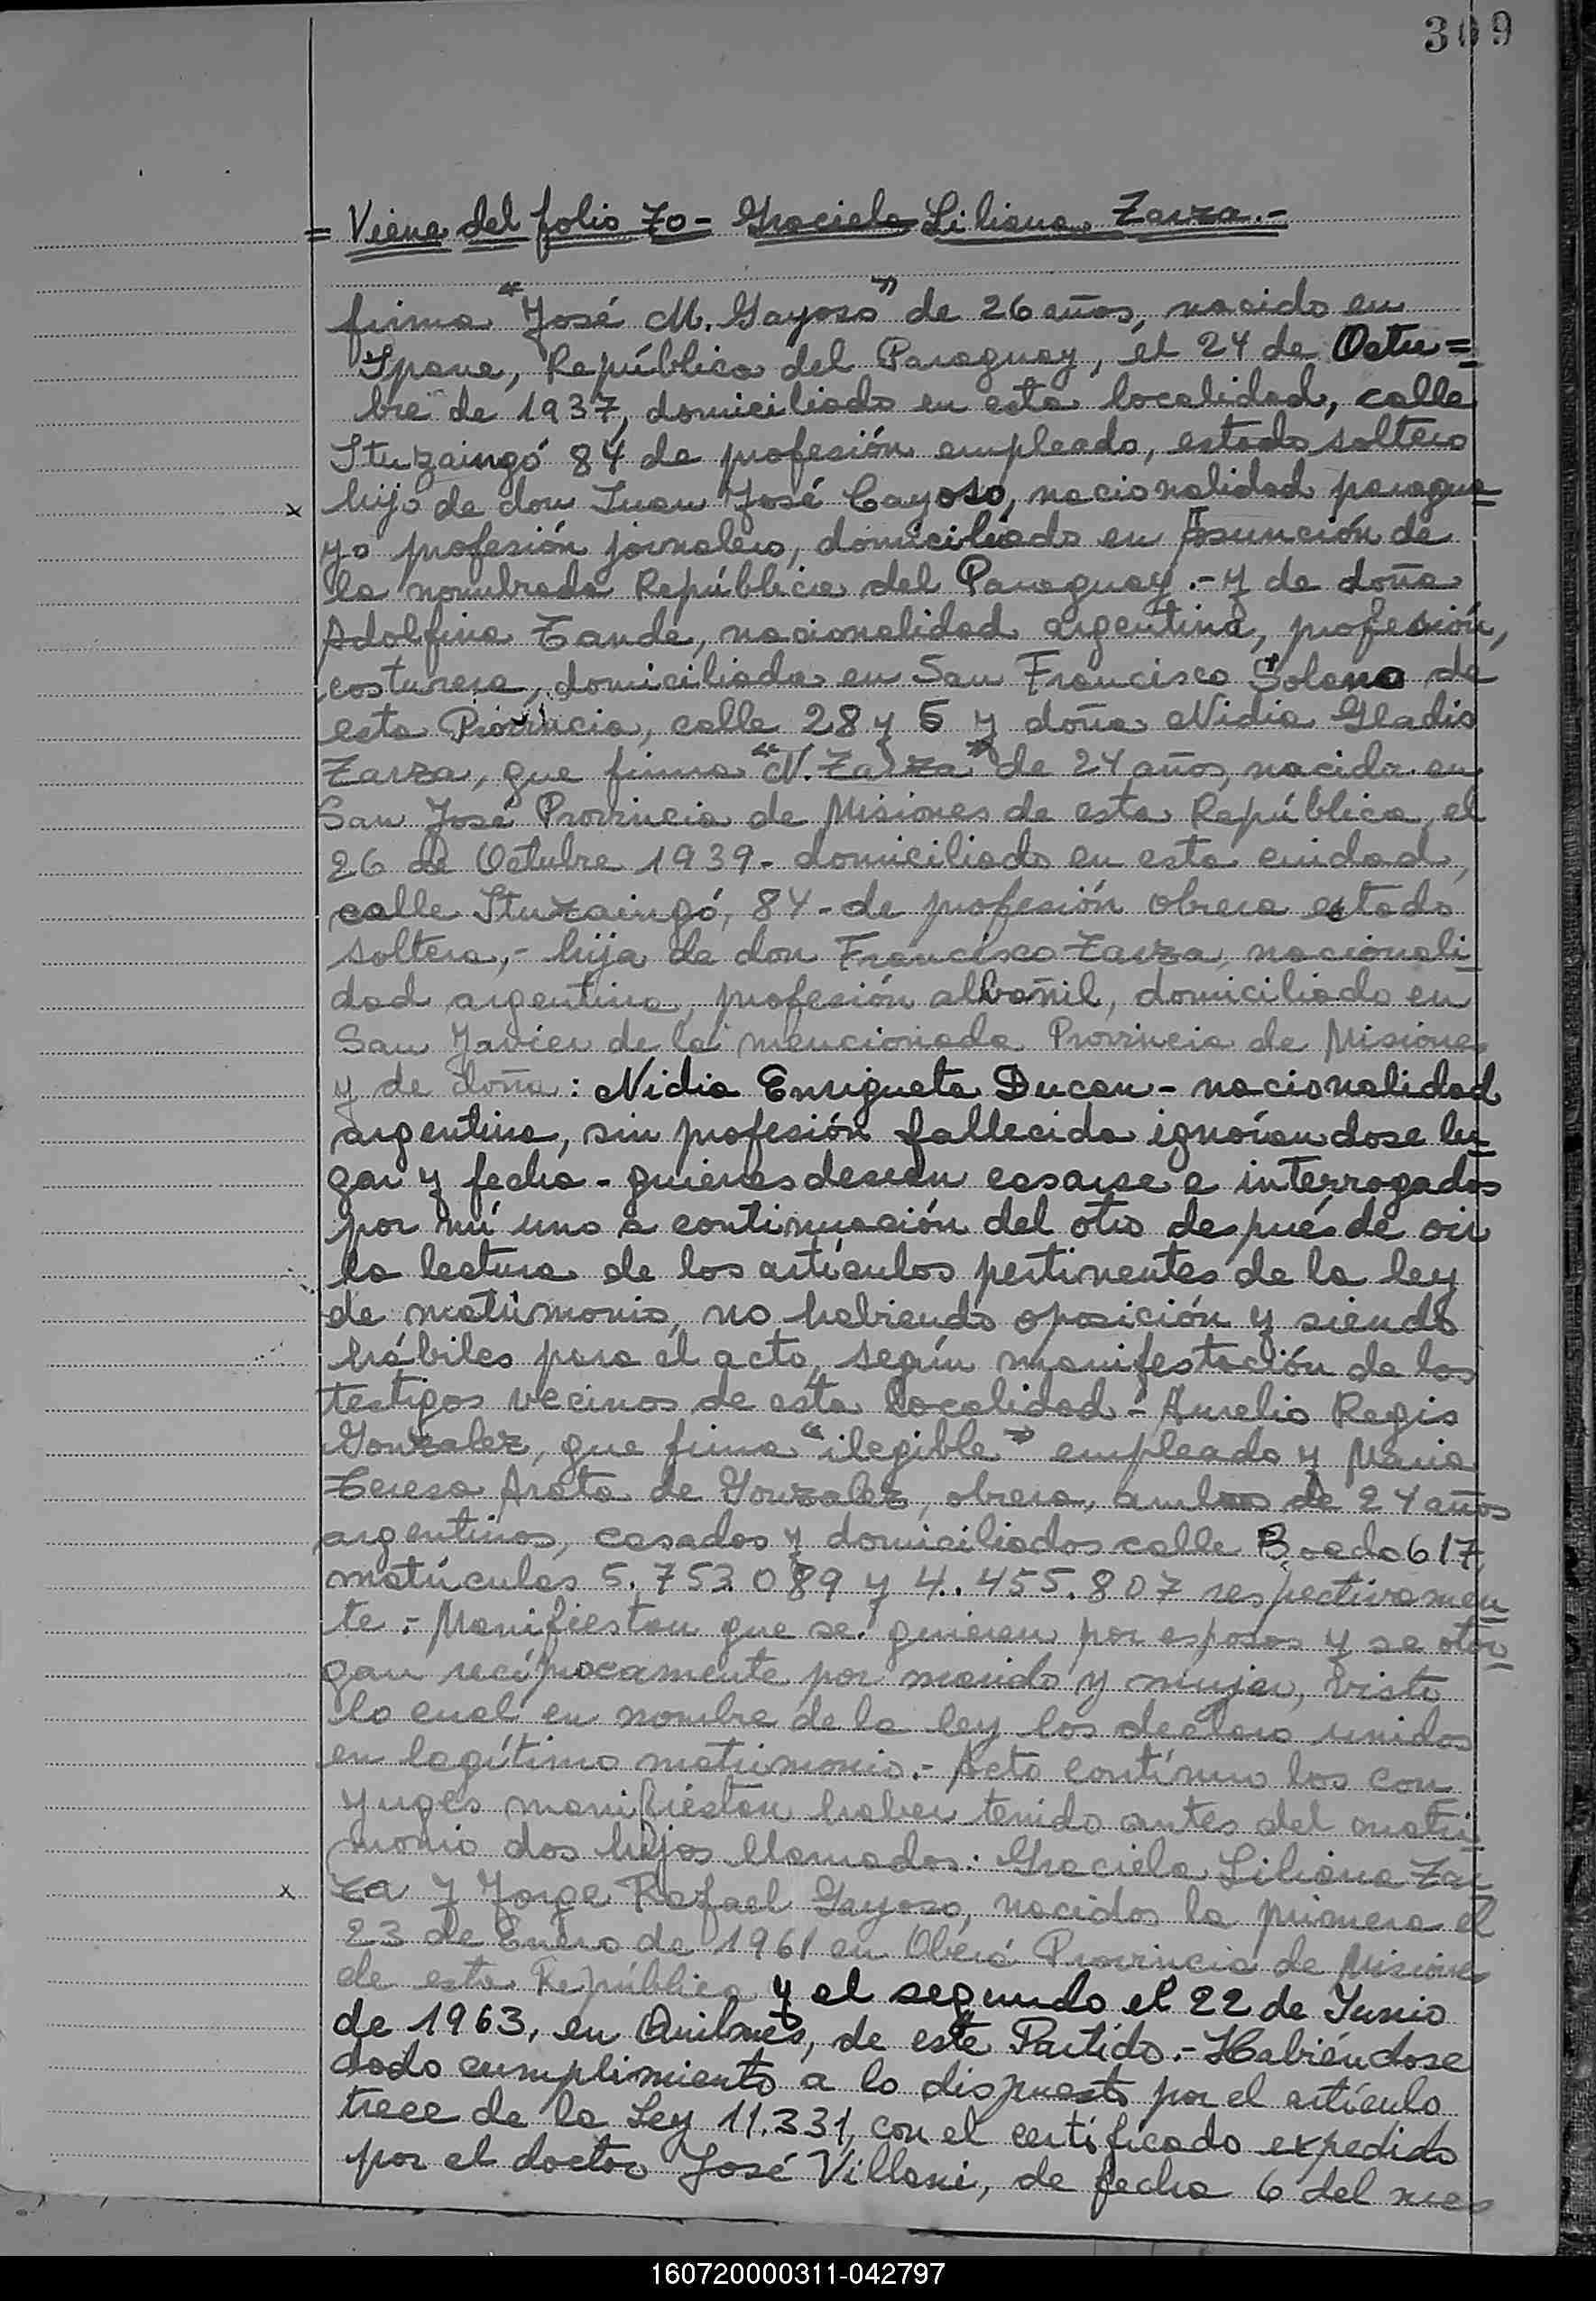 309
= Viene del folio 70 - Graciela Liliana Zarza.-
firma "José M. Gayoso" de 26 años, nacido en
Ipane, República del Paraguay, el 24 de Octu=
bre de 1937, domiciliado en esta localidad, calle
Ituzaingó 84 de profesión empleado, estado soltero
x hijo de don Juan José Cayoso, nacionalidad paragua-
yo profesión jornalero, domiciliado en Asunción de
la nombrada República del Paraguay.- y de doña
Adolfina Zande, nacionalidad argentina, profesión,
costurera, domiciliada en San Francisco Solano de
esta Provincia, calle 28 y 5 y doña Nidia Gladis
Zarza, que firma "N. Zarza" de 24 años, nacida en
San José Provincia de Misiones de esta República, el
26 de Octubre 1939- domiciliado en esta ciudad,
calle Ituzaingó, 84- de profesión obrera estado
soltera,- hija de don Francisco Zarza, nacionali-
dad argentina, profesión albañil, domiciliado en
San Javier de la mencionada Provincia de Misiones
y de doña: Nidia Enriqueta Ducan - nacionalidad
argentina, sin profesión fallecida ignorandose lu-
gar y fecha - quienes desean casarse e interrogados
por mí uno a continuación del otro después de oir
la lectura de los artículos pertinentes de la ley
de matrimonio, no habiendo oposición y siendo
hábiles para el acto, según manifestación de los
testigos vecinos de esta localidad - Aurelio Regis
Gonzalez, que firma "ilegible" empleado y Maria
Teresa Arata de Gonzalez, obrera, ambos de 24 años
argentinos, casados y domiciliados calle Boedo 617,
matrículas 5.753.089 y 4.455.807 respectivamen-
te.- Manifiestan que se quieren por esposos y se otor-
gan recíprocamente por marido y mujer, visto
lo cual en nombre de la ley los declaro unidos
en legítimo matrimonio.- Acto contínuo los con
yuges manifiestan haber tenido antes del matri-
monio dos hijos llamados: Graciela Liliana Zar-
x za y Jorge Rafael Gayoso, nacidos la primera el
23 de Enero de 1961 en Oberá Provincia de Misiones
de esta República y el segundo el 22 de Junio
de 1963, en Quilmes, de este Partido.- Habiéndose
dado cumplimiento a lo dispuesto por el artículo
trece de la Ley 11.331, con el certificado expedido
por el doctor José Villani, de fecha 6 del mes
160720000311-042797